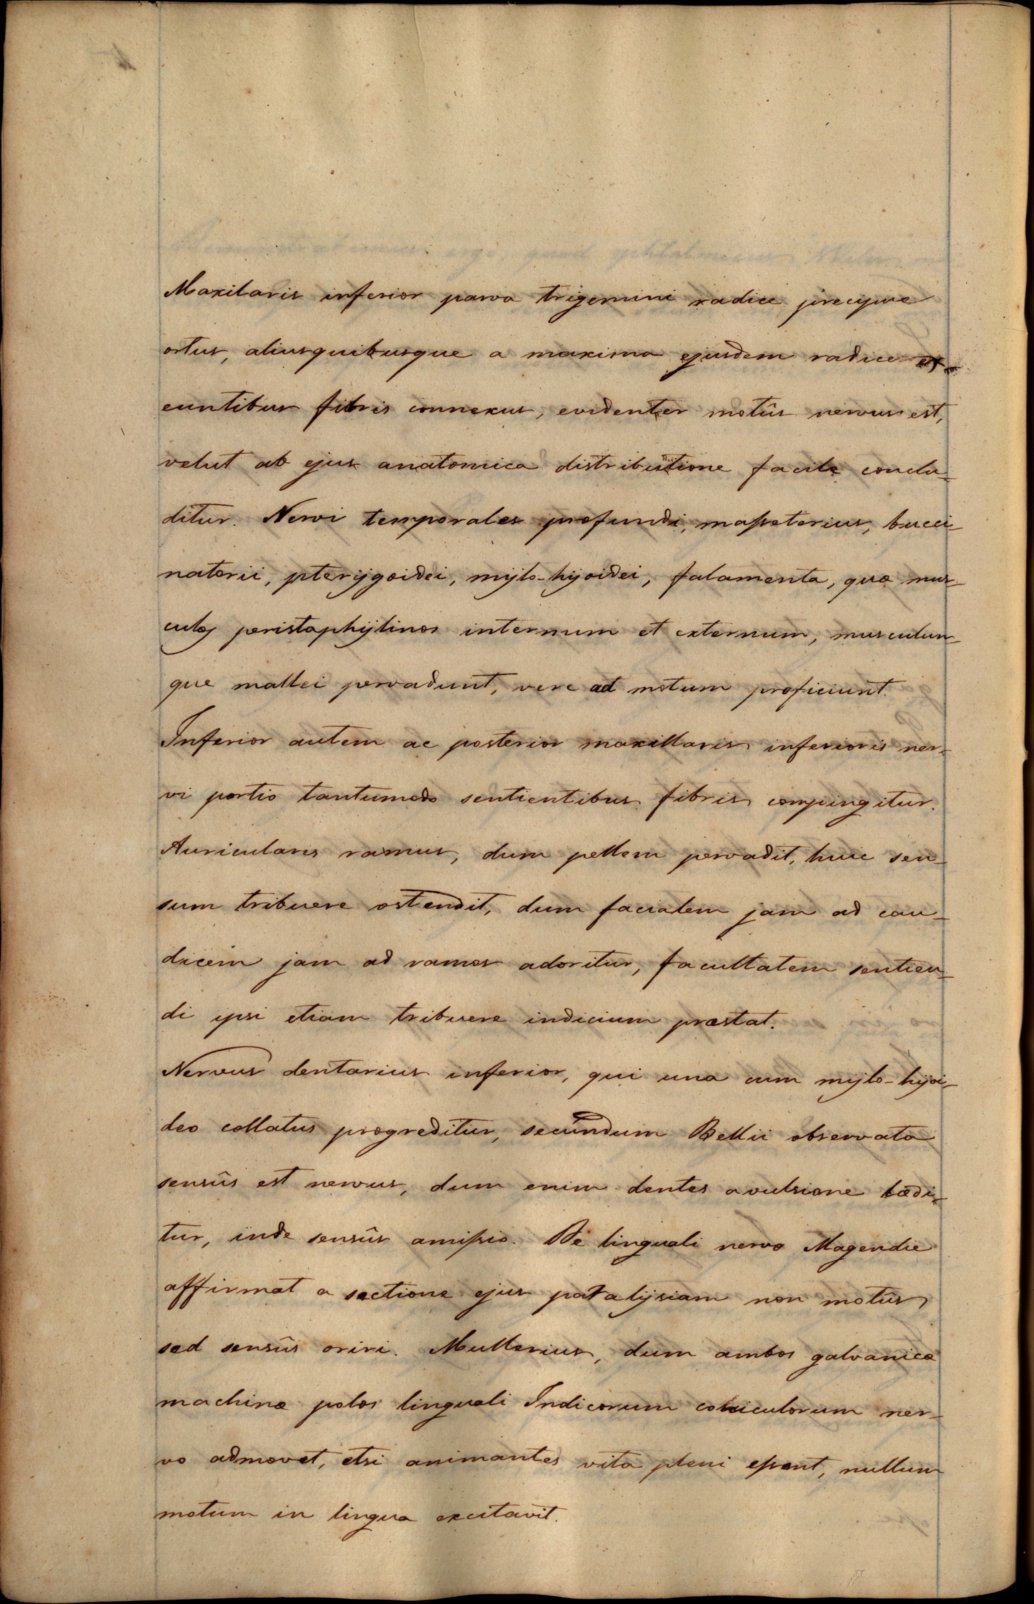 Maxilaris inferior parva trigemini radice precipue
ortus, aliusquibusque a maxima ejusdem radice ex-
euntibus fibris connexus, evidenter motûs nervus est,
velut ab ejus anatomica distributione facile conclu-
ditur. Nervi temporales profundi, masseterius, bucci-
natorii, pterygoidei, mylo-hyoidei, falamenta, quæ mus-
culos peristaphylinos internum et externum, musculum-
que mallei pervadunt, vere ad motum proficiunt.
Inferior autem ac posterior maxillaris inferioris ner-
vi portio tantumodo sentientibus fibris compingitur.
Auricularis ramus, dum pellem pervadit, huic sen-
sum tribuere ostendit, dum facialem jam ad cau-
dicem jam ad ramos adoritur, facultatem sentien-
di ipsi etiam tribuere indicium præstat.
Nervus dentarius inferior, qui una cum mylo-hyoi-
deo collatus progreditur, secundum Bellii observata
sensûs est nervus, dum enim dentes avulsione lædi-
tur, inde sensûs amissio. De linguali nervo Magendie
affirmat a sectione ejus paralysiam non motûs
sed sensûs oriri. Mullerius, dum ambos galvanicæ
machinæ polos linguali Indicorum cuniculorum ner-
vo admovet, etsi animantes vita pleni essent, nullum
motum in lingua excitavit.